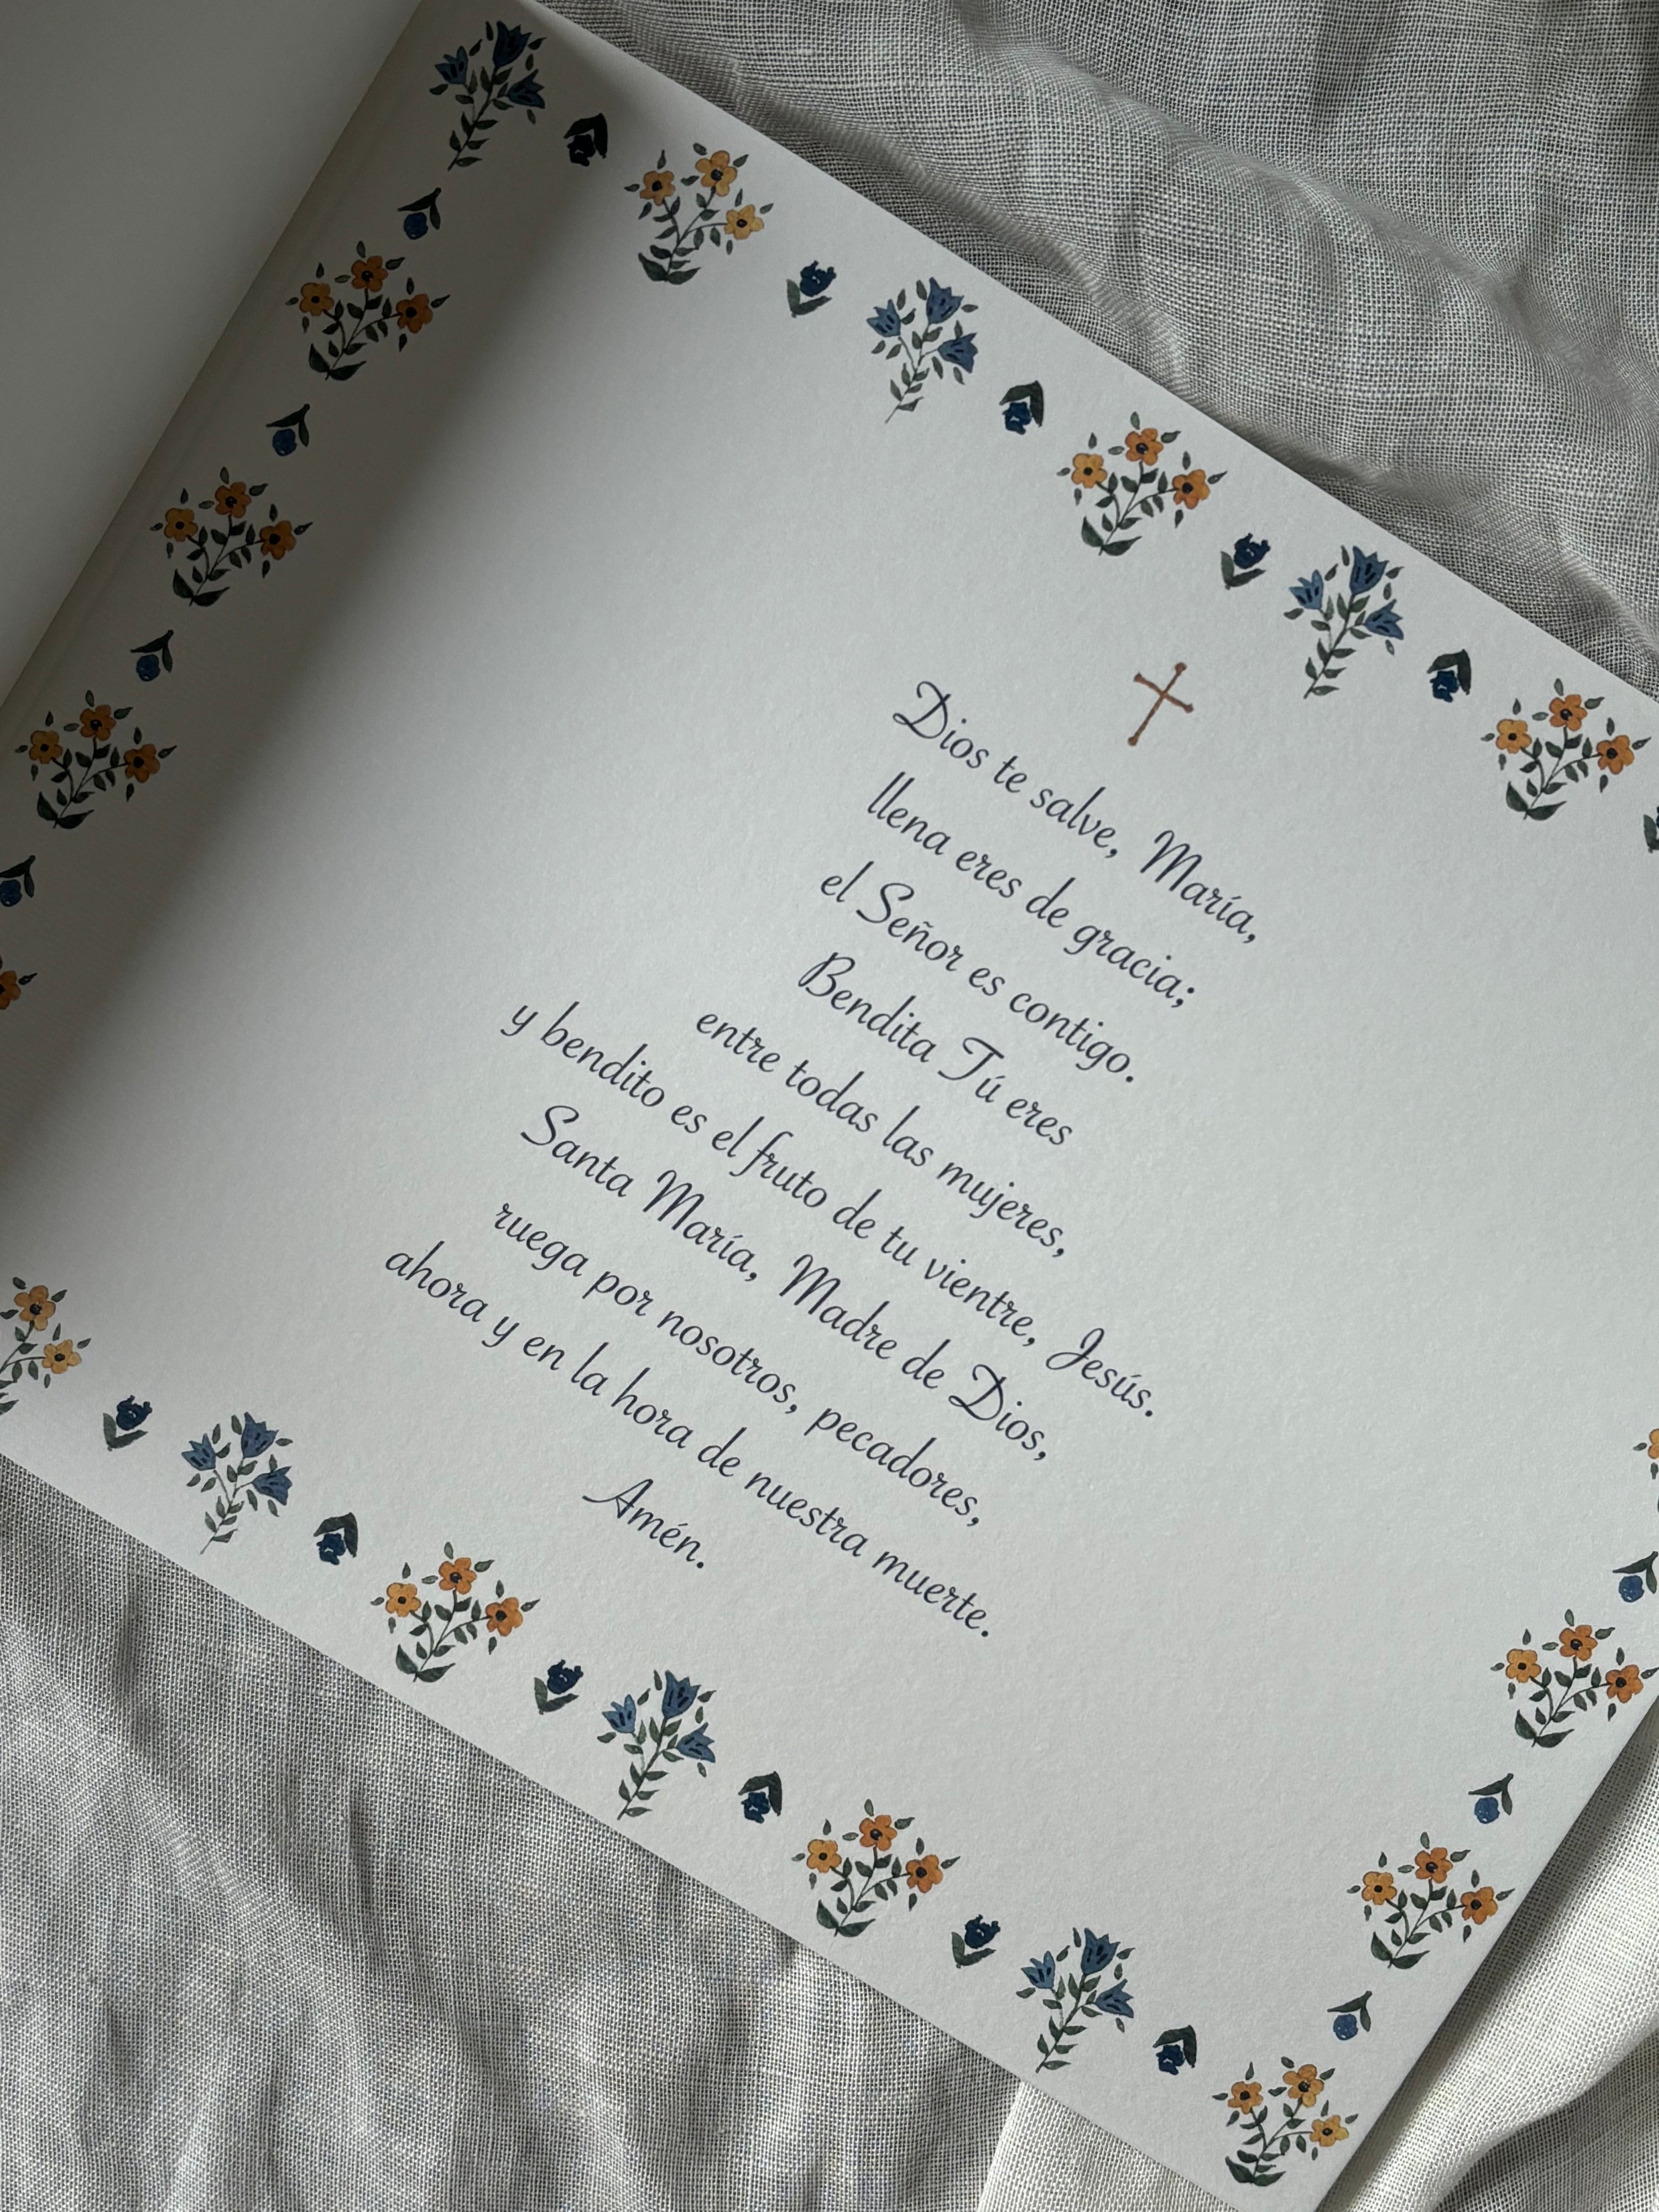 Dios te salve, María,
llena eres de gracia;
el Señor es contigo.
Bendita Tú eres
entre todas las mujeres,
y bendito es el fruto de tu vientre, Jesús.
Santa María, Madre de Dios,
ruega por nosotros, pecadores,
ahora y en la hora de nuestra muerte.
Amén.